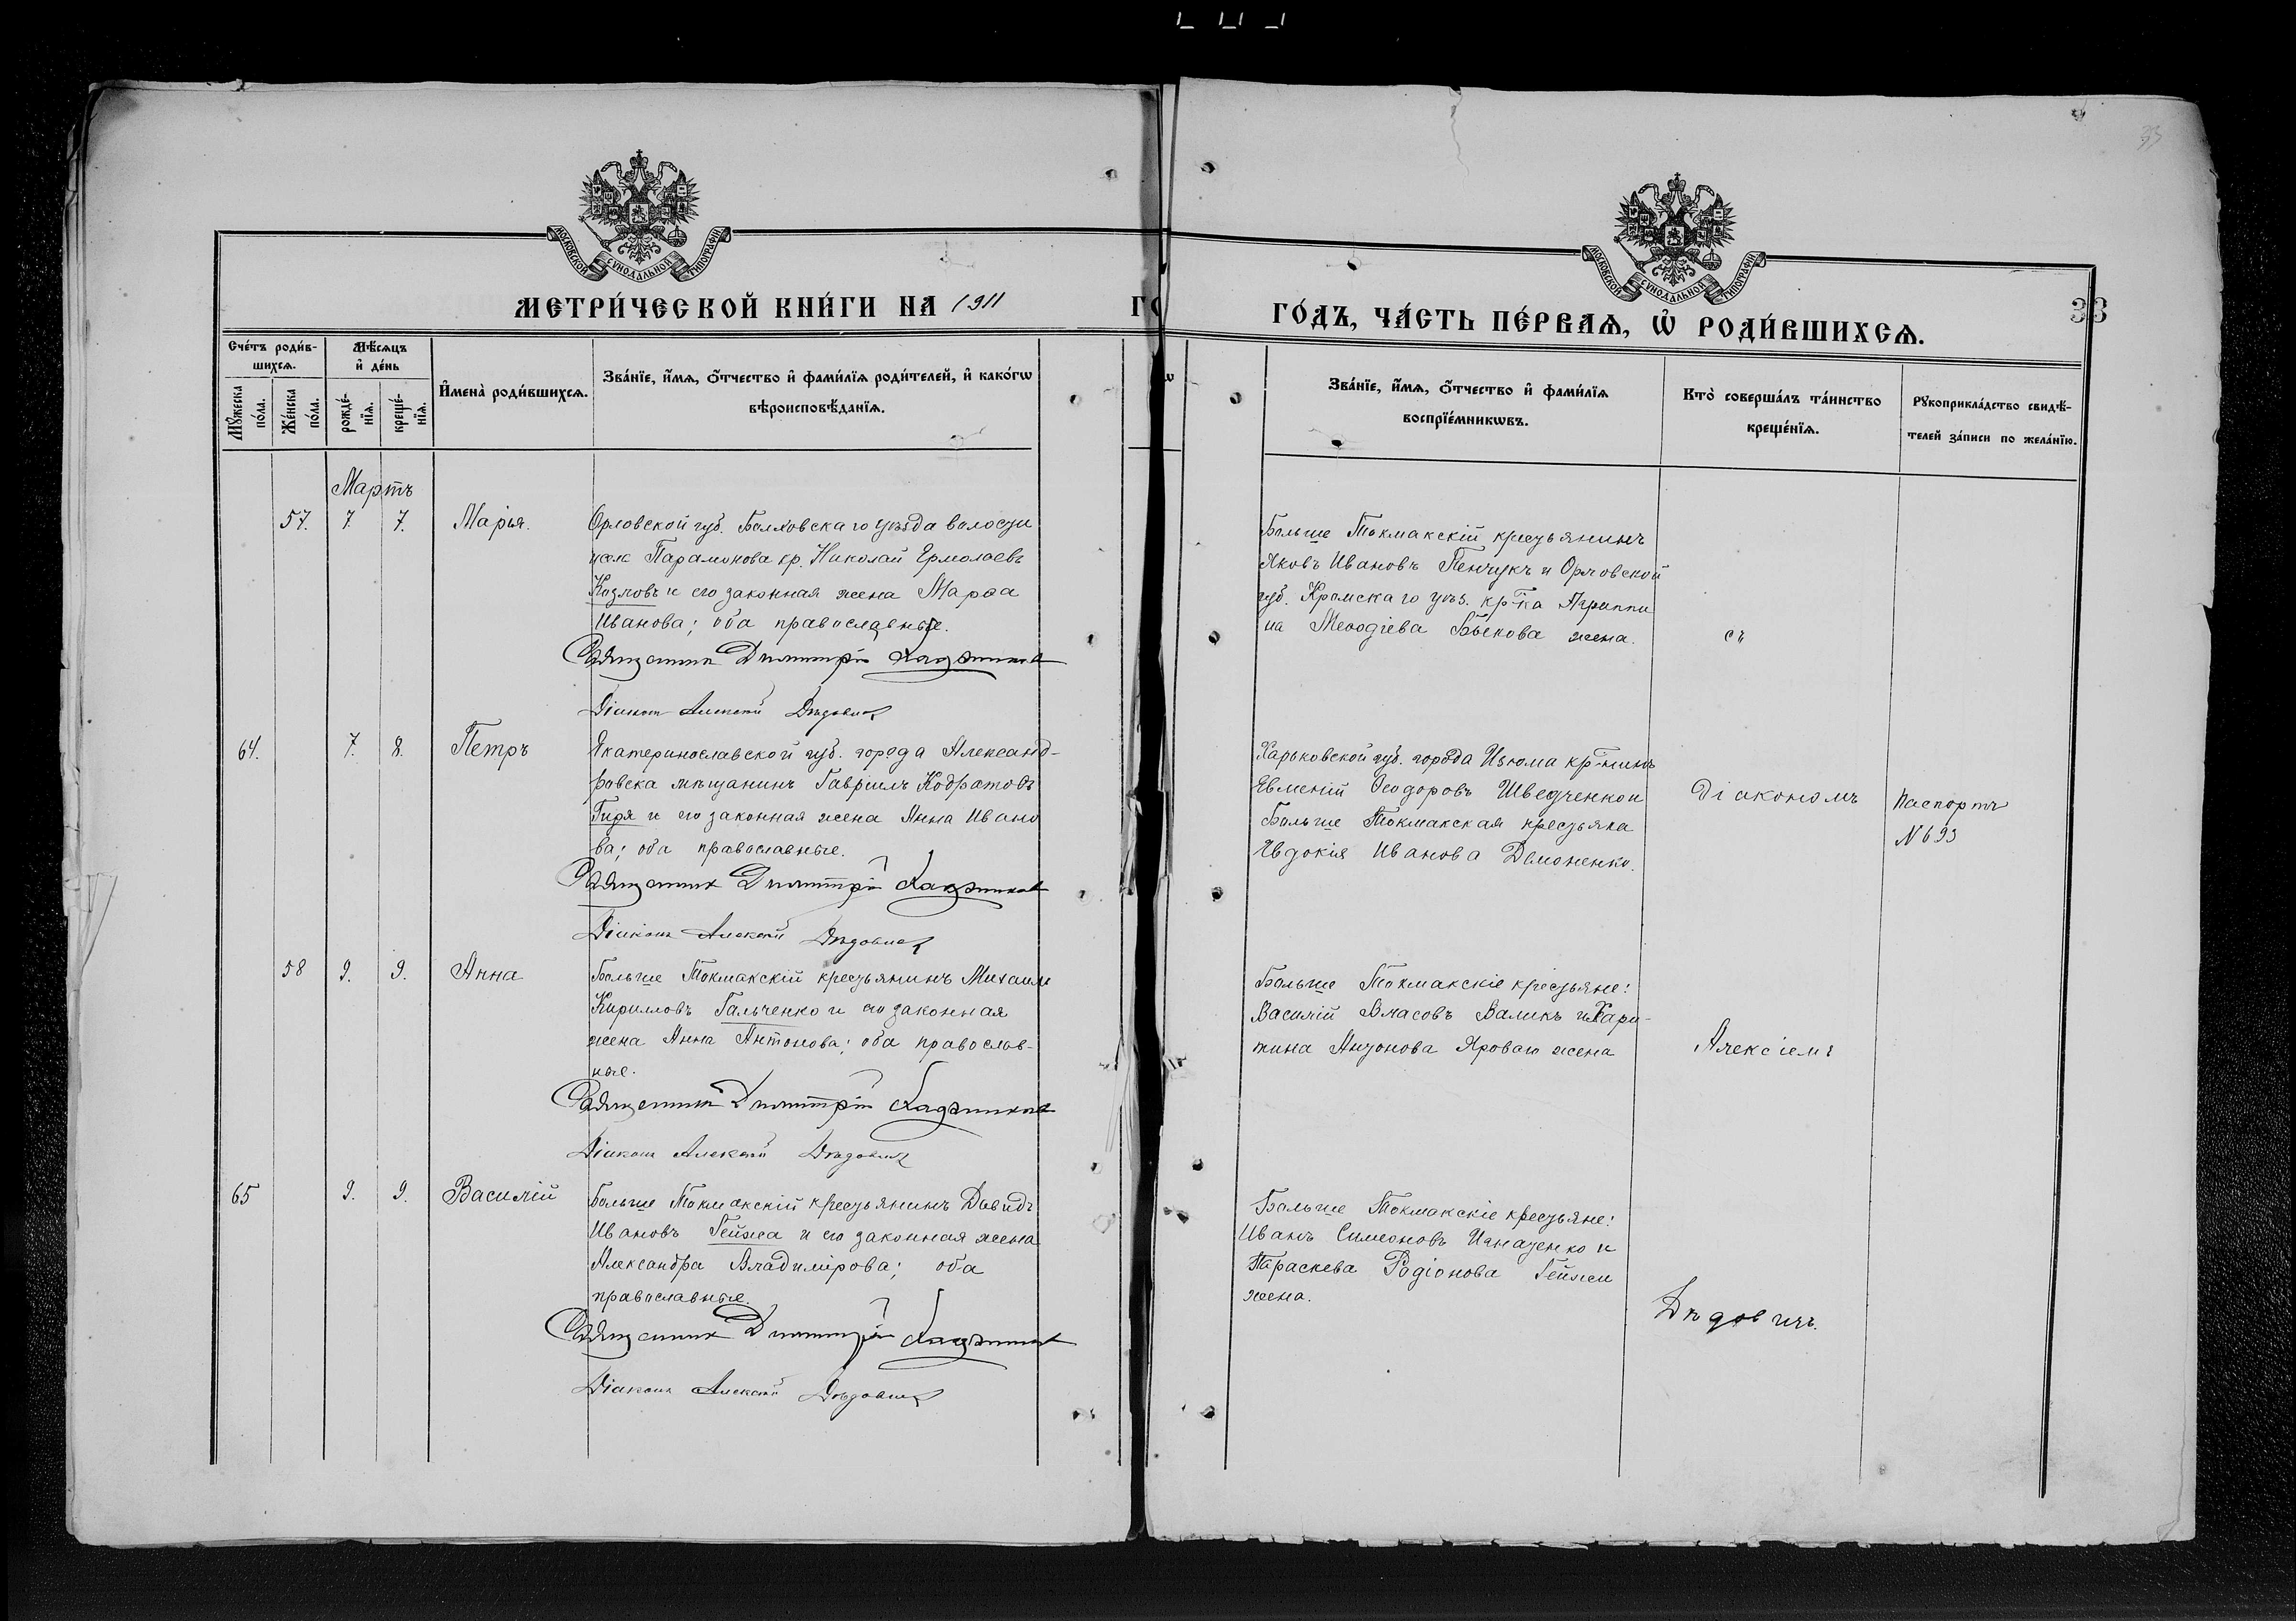 33
МОСКОВСКОЙ СѴНОДАЛЬНОЙ ТИПОГРАФІИ
МОСКОВСКОЙ СѴНОДАЛЬНОЙ ТИПОГРАФІИ
МЕТРИ́ЧЕСКОЙ КНИ́ГИ НА 1911
ГО́ДЪ, ЧА́СТЬ ПЕ́РВАѦ, Ѡ҆ РОДИ́ВШИХСѦ.
33
Сче́тъ роди́в-
шихсѧ.
Мꙋ́жеска по́ла.
Же́нска по́ла.
Мѣ́сѧцъ
и҆ де́нь
рожде́-
нїѧ.
креще́-
нїѧ.
И҆мена̀ роди́вшихсѧ.
Зва́нїе, и҆́мѧ, ѻ҆́тчество и҆ фами́лїѧ роди́телей, и҆ како́гѡ
вѣроисповѣ́данїѧ.
Зва́нїе, и҆́мѧ, ѻ҆́тчество и҆ фами́лїѧ
воспрїе́мникѡвъ.
Кто̀ соверша́лъ та́инство
креще́нїѧ.
Рꙋкоприкла́дство свидѣ́-
телей за́писи по жела́нїю.
Мартъ
57. 7. 7. Марія.
Орловской губ. Болховскаго уѣзда волости
села Парамонова кр. Николай Ермолаевъ
Козловъ и его законная жена Марѳа
Иванова; оба православные.
Священникъ Димитрій
Діаконъ Алексѣй Дѣдовичъ
Больше Токмакскій крестьянинъ
Яковъ Ивановъ Пенчукъ и Орловской
губ. Кромскаго уѣз. кр-ка Агриппи
на Меѳодіева Быкова жена.
съ
64. 7. 8. Петръ
Екатеринославской губ. города Александ-
ровска мѣщанинъ Гавріилъ Кодратовъ
Гидя и его законная жена Анна Ивано
ва; оба православные.
Священникъ Димитрій
Діаконъ Алексѣй Дѣдовичъ
Харьковской губ. города Изюма кр-нинъ
Евменій Ѳеодоровъ Шведченко и
Больше Токмакская крестьянка
Евдокія Иванова Демоненко.
Діакономъ
Паспортъ
N 693
58 9. 9. Анна
Больше Токмакскій крестьянинъ Михаилъ
Кирилловъ Гальченко и его законная
жена Анна Антонова; оба православ-
ные.
Священникъ Димитрій
Діаконъ Алексѣй Дѣдовичъ
Больше Токмакскіе крестьяне:
Василій Власовъ Валикъ и Хари-
тина Антонова Яровая жена
Алексіемъ
65 9. 9. Василій
Больше Токмакскій крестьянинъ Давидъ
Ивановъ Гейжа и его законная жена
Александра Владимірова; оба
православные.
Священникъ Димитрій
Діаконъ Алексѣй Дѣдовичъ
Больше Токмакскіе крестьяне:
Иванъ Симеоновъ Игнатенко и
Параскева Родіонова Гейжи
жена.
Дѣдовичъ.